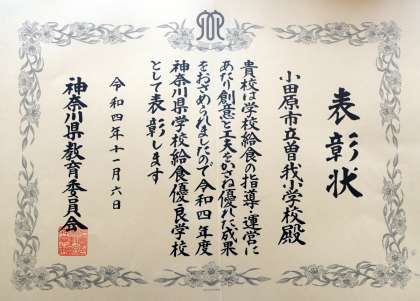 表彰状
小田原市立曽我小学校殿
貴校は学校給食の指導・運営に
あたり創意と工夫をかさね優れた成果
をおさめられましたので令和四年度
神奈川県学校給食優良学校
として表彰します
令和四年十一月六日
神奈川県教育委員会